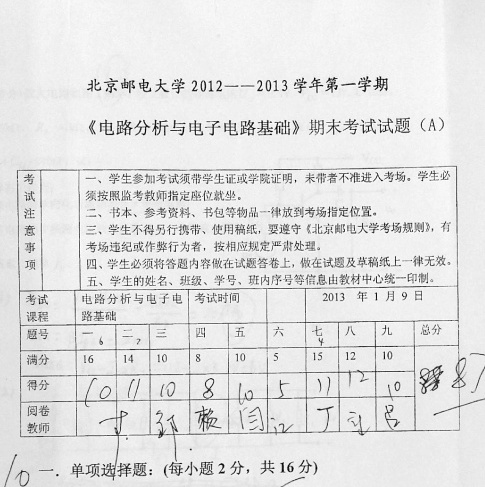 北京邮电大学 2012——2013 学年第一学期
《电路分析与电子电路基础》期末考试试题（A）
考试注意事项
一、学生参加考试须带学生证或学院证明，未带者不准进入考场。学生必
须按照监考教师指定座位就坐。
二、书本、参考资料、书包等物品一律放到考场指定位置。
三、学生不得另行携带、使用稿纸，要遵守《北京邮电大学考场规则》，有
考场违纪或作弊行为者，按相应规定严肃处理。
四、学生必须将答题内容做在试题答卷上，做在试题及草稿纸上一律无效。
五、学生的姓名、班级、学号、班内序号等信息由教材中心统一印制。
考试课程 电路分析与电子电路基础 考试时间 2013 年 1 月 9 日
题号 一 二 三 四 五 六 七 八 九 总分
6 2 4
满分 16 14 10 8 10 5 15 12 10
得分 10 11 10 8 10 5 11 12 10 87
阅卷教师 闫 江 丁 吕
10 一．单项选择题：(每小题 2 分，共 16 分)